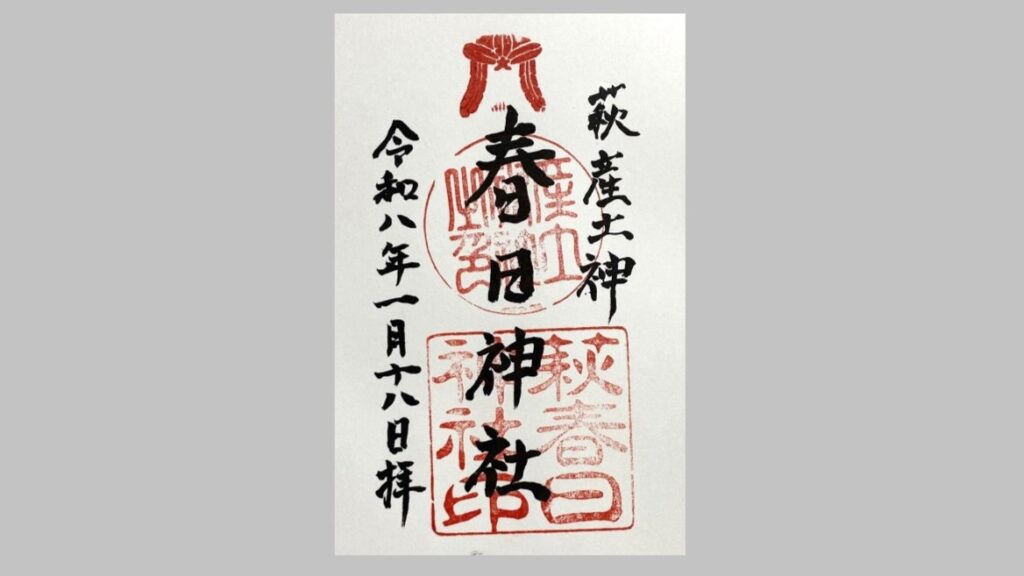 萩産土神
春日神社
令和八年一月十八日拝
萩春日
神社印